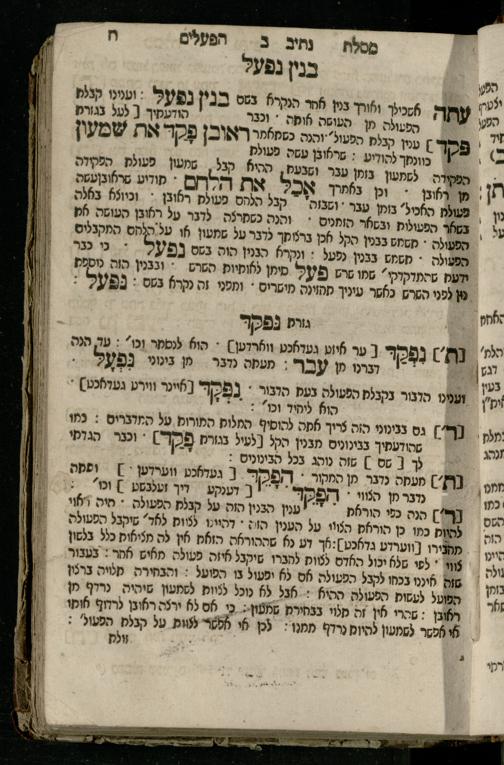 מסלת נתיב ב הפעלים ח
בנין נפעל
עתה אשכילך ואורך בנין אחר הנקרא בשם בנין נפעל : וענינו קבלת
הפעולה מן העושה אותה · וכבר הודעתיך [ לעל בגזרת
פקד ] ענין קבלת הפעול' · והנה כשתאמר ראובן פקד את שמעון
כוונתך להודיע : שראובן עשה פעולת
הפקידה לשמעון בזמן עבר ושבעת ההיא קבל שמעון פעולת הפקידה
מן ראובן · וכן באמרך אכל את הלחם · תודיע שראובן עשה
פעולת האכיל' בזמן עבר · ושבזה קבל הלחם פעולת ראובן · וכיוצא באלה
בשאר הפעולות ובשאר הזמנים · והנה כשתרצה לדבר על ראובן העושה את
הפעולה · תשמש בבנין הקל אכן ברצותך לדבר על שמעון או על הלחם המקבלים
הפעולה · תשמש בבנין נפעל : ונקרא הבנין הזה בשם נפעל · כי כבר
ידעת שהמדקדקי' שמו שרש פעל סימן לאותיות השרש · ובבנין הזה נוספת
נון לפני השרש כאשר עיניך תחזינה מישרים · ומפני זה נקרא בשם : נפעל :
גזרת נפקד
[ת'] נפקד [ ער איזט געדאכט ווארדען ] · הוא לנסתר וכו' : עד הנה
דברנו מן עבר : מעתה נדבר מן בינוני נפעל ·
וענינו הדבור בקבלת הפעולה בעת הדבור · נפקד [איינר ווירט געדאכט] ·
הוא ליחיד וכו' :
[ר'] גם בבינוני הזה צריך אתה להוסיף המלות המורות על המדברים : כמו
שהודעתיך בבינונים מבנין הקל [לעיל בגזרת פקד] · וכבר הגדתי
לך [ שם ] שזה נוהג בכל הבינונים :
[ת'] מעתה נדבר מן המקור · הפקד [ געדאכט ווערדען · ] ועתה
נדבר מן הצווי · הפקד [ דענקע דיך זעלבסט ] וכו' :
[ר'] הנה כפי הוראת ענין הבנין הזה על קבלת הפעולה · היה ראוי
להיות כמו כן הוראת הצווי על הענין הזה · דהיינו לצוות לאד' שיקבל הפעולה
מחבירו [ווערדע געדאכט] : אך דע נא שההוראה הזאת אין לה מציאות כלל בלשון
צווי · לפי שלא יכול האדם לצוות לחברו שיקבל איזה פעולה מאיש אחר : בעבור
שזה איננו בכחו לקבל הפעולה אם לא יפעול בו הפועל : והבחירה תלויה ברצון
הפועל לעשות הפעולה ההיא : אבל לא נוכל לצוות לשמעון שיהיה נרדף מן
ראובן : שהרי אין זה תלוי בבחירת שמעון : כי אם לא ירצה ראובן לרדוף אותו
אי אפשר לשמעון להיות נרדף ממנו : לכן אי אפשר לצוות על קבלת הפעול' :
זולת